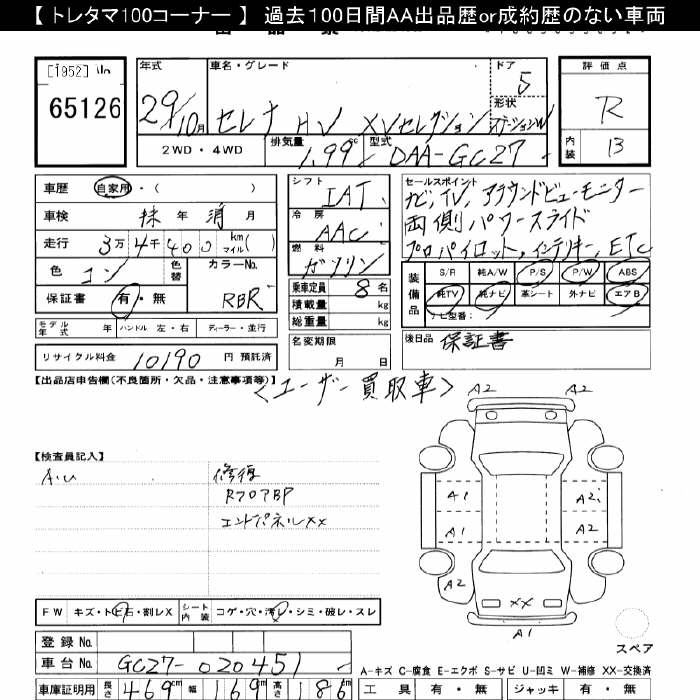 【 トレタマ100コーナー 】 過去100日間AA出品歴or成約歴のない車両
[1952]
65126
年式 車名・グレード ドア 評価点
29/10月 セレナ HV XVセレクション 5 R
形状
2WD・4WD 排気量 1.99 cc 型式 DAA-GC27 内装 B
車歴 自家用・( )
シフト IAT
セールスポイント
ナビ,TV,アラウンドビューモニター
車検 抹 年 消 月
冷房 AAC
両側パワースライド
走行 3万 4千 400 km マイル( )
燃料 ガソリン
プロパイロット,インテリキー,ETC
色 コン 色替 カラーNo. RBR
乗車定員 8 名
積載量 kg
総重量 kg
装備品 S/R 純A/W P/S P/W ABS
純TV 純ナビ 革シート 外ナビ エアB
ナビ型番:
保証書 有・無
モデル年式 年 ハンドル 左・右 ディーラー・並行
名変期限 月 日
後日品 保証書
リサイクル料金 10190 円 預託済
【出品店申告欄(不良箇所・欠品・注意事項等)】
<ユーザー買取車>
A2 A2
【検査員記入】
A.U 修復
RフロアBP
エンドパネルXX
A1 A2
A1 A2
A2
XX
A1
スペア
FW キズ・トビ石・割レX シート内装 コゲ・穴・汚レ・シミ・破レ・スレ
登録 No.
車台 No. GC27-020451
A-キズ C-腐食 E-エクボ S-サビ U-凹ミ W-補修 XX-交換済
車庫証明用 長さ 469 cm 幅 169 cm 高さ 186 cm
工具 有・無 ジャッキ 有・無